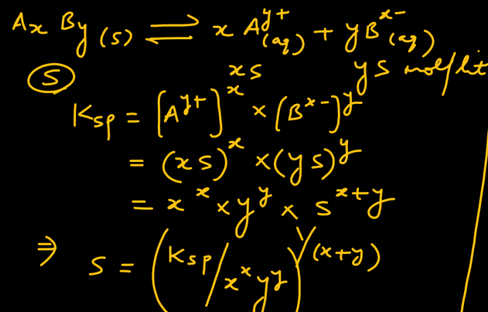 AxBy(s) ⇌ x A^y+(aq) + y B^x-(aq)
(S) xs ys mol/lit
Ksp = [A^y+]^x × [B^x-]^y
= (xs)^x × (ys)^y
= x^x × y^y × s^x+y
⇒ s = (Ksp/x^x y^y)^1/(x+y)